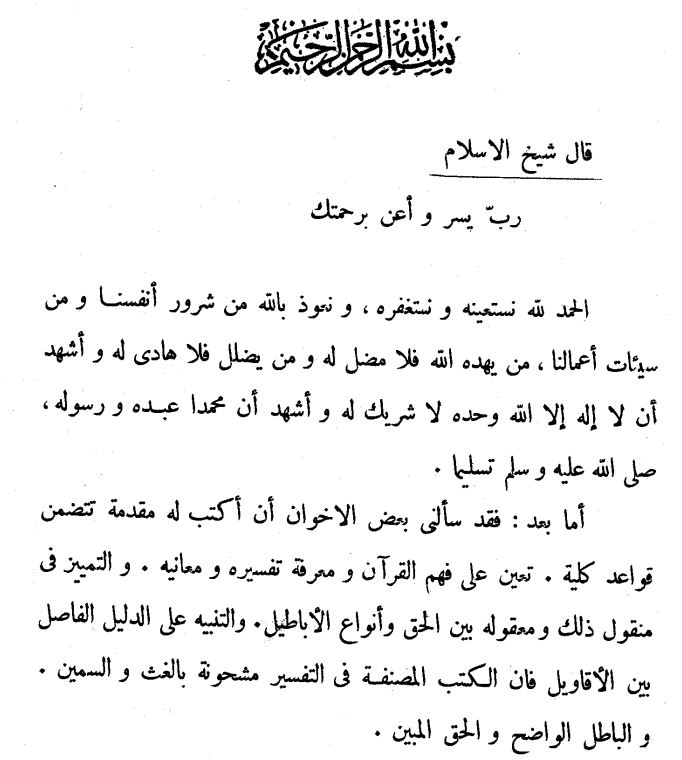 بسم الله الرحمن الرحيم
قال شيخ الاسلام
ربّ يسر و أعن برحمتك
الحمد لله نستعينه و نستغفره ، و نعوذ بالله من شرور أنفسنا و من
سيئات أعمالنا ، من يهده الله فلا مضل له و من يضلل فلا هادى له و أشهد
أن لا إله إلا الله وحده لا شريك له و أشهد أن محمدا عبده و رسوله ،
صلى الله عليه و سلم تسليما .
أما بعد : فقد سألنى بعض الاخوان أن أكتب له مقدمة تتضمن
قواعد كلية . تعين على فهم القرآن و معرفة تفسيره و معانيه . و التمييز فى
منقول ذلك و معقوله بين الحق وأنواع الأباطيل. والتنبيه على الدليل الفاصل
بين الأقاويل فان الكتب المصنفة فى التفسير مشحونة بالغث و السمين .
و الباطل الواضح و الحق المبين .